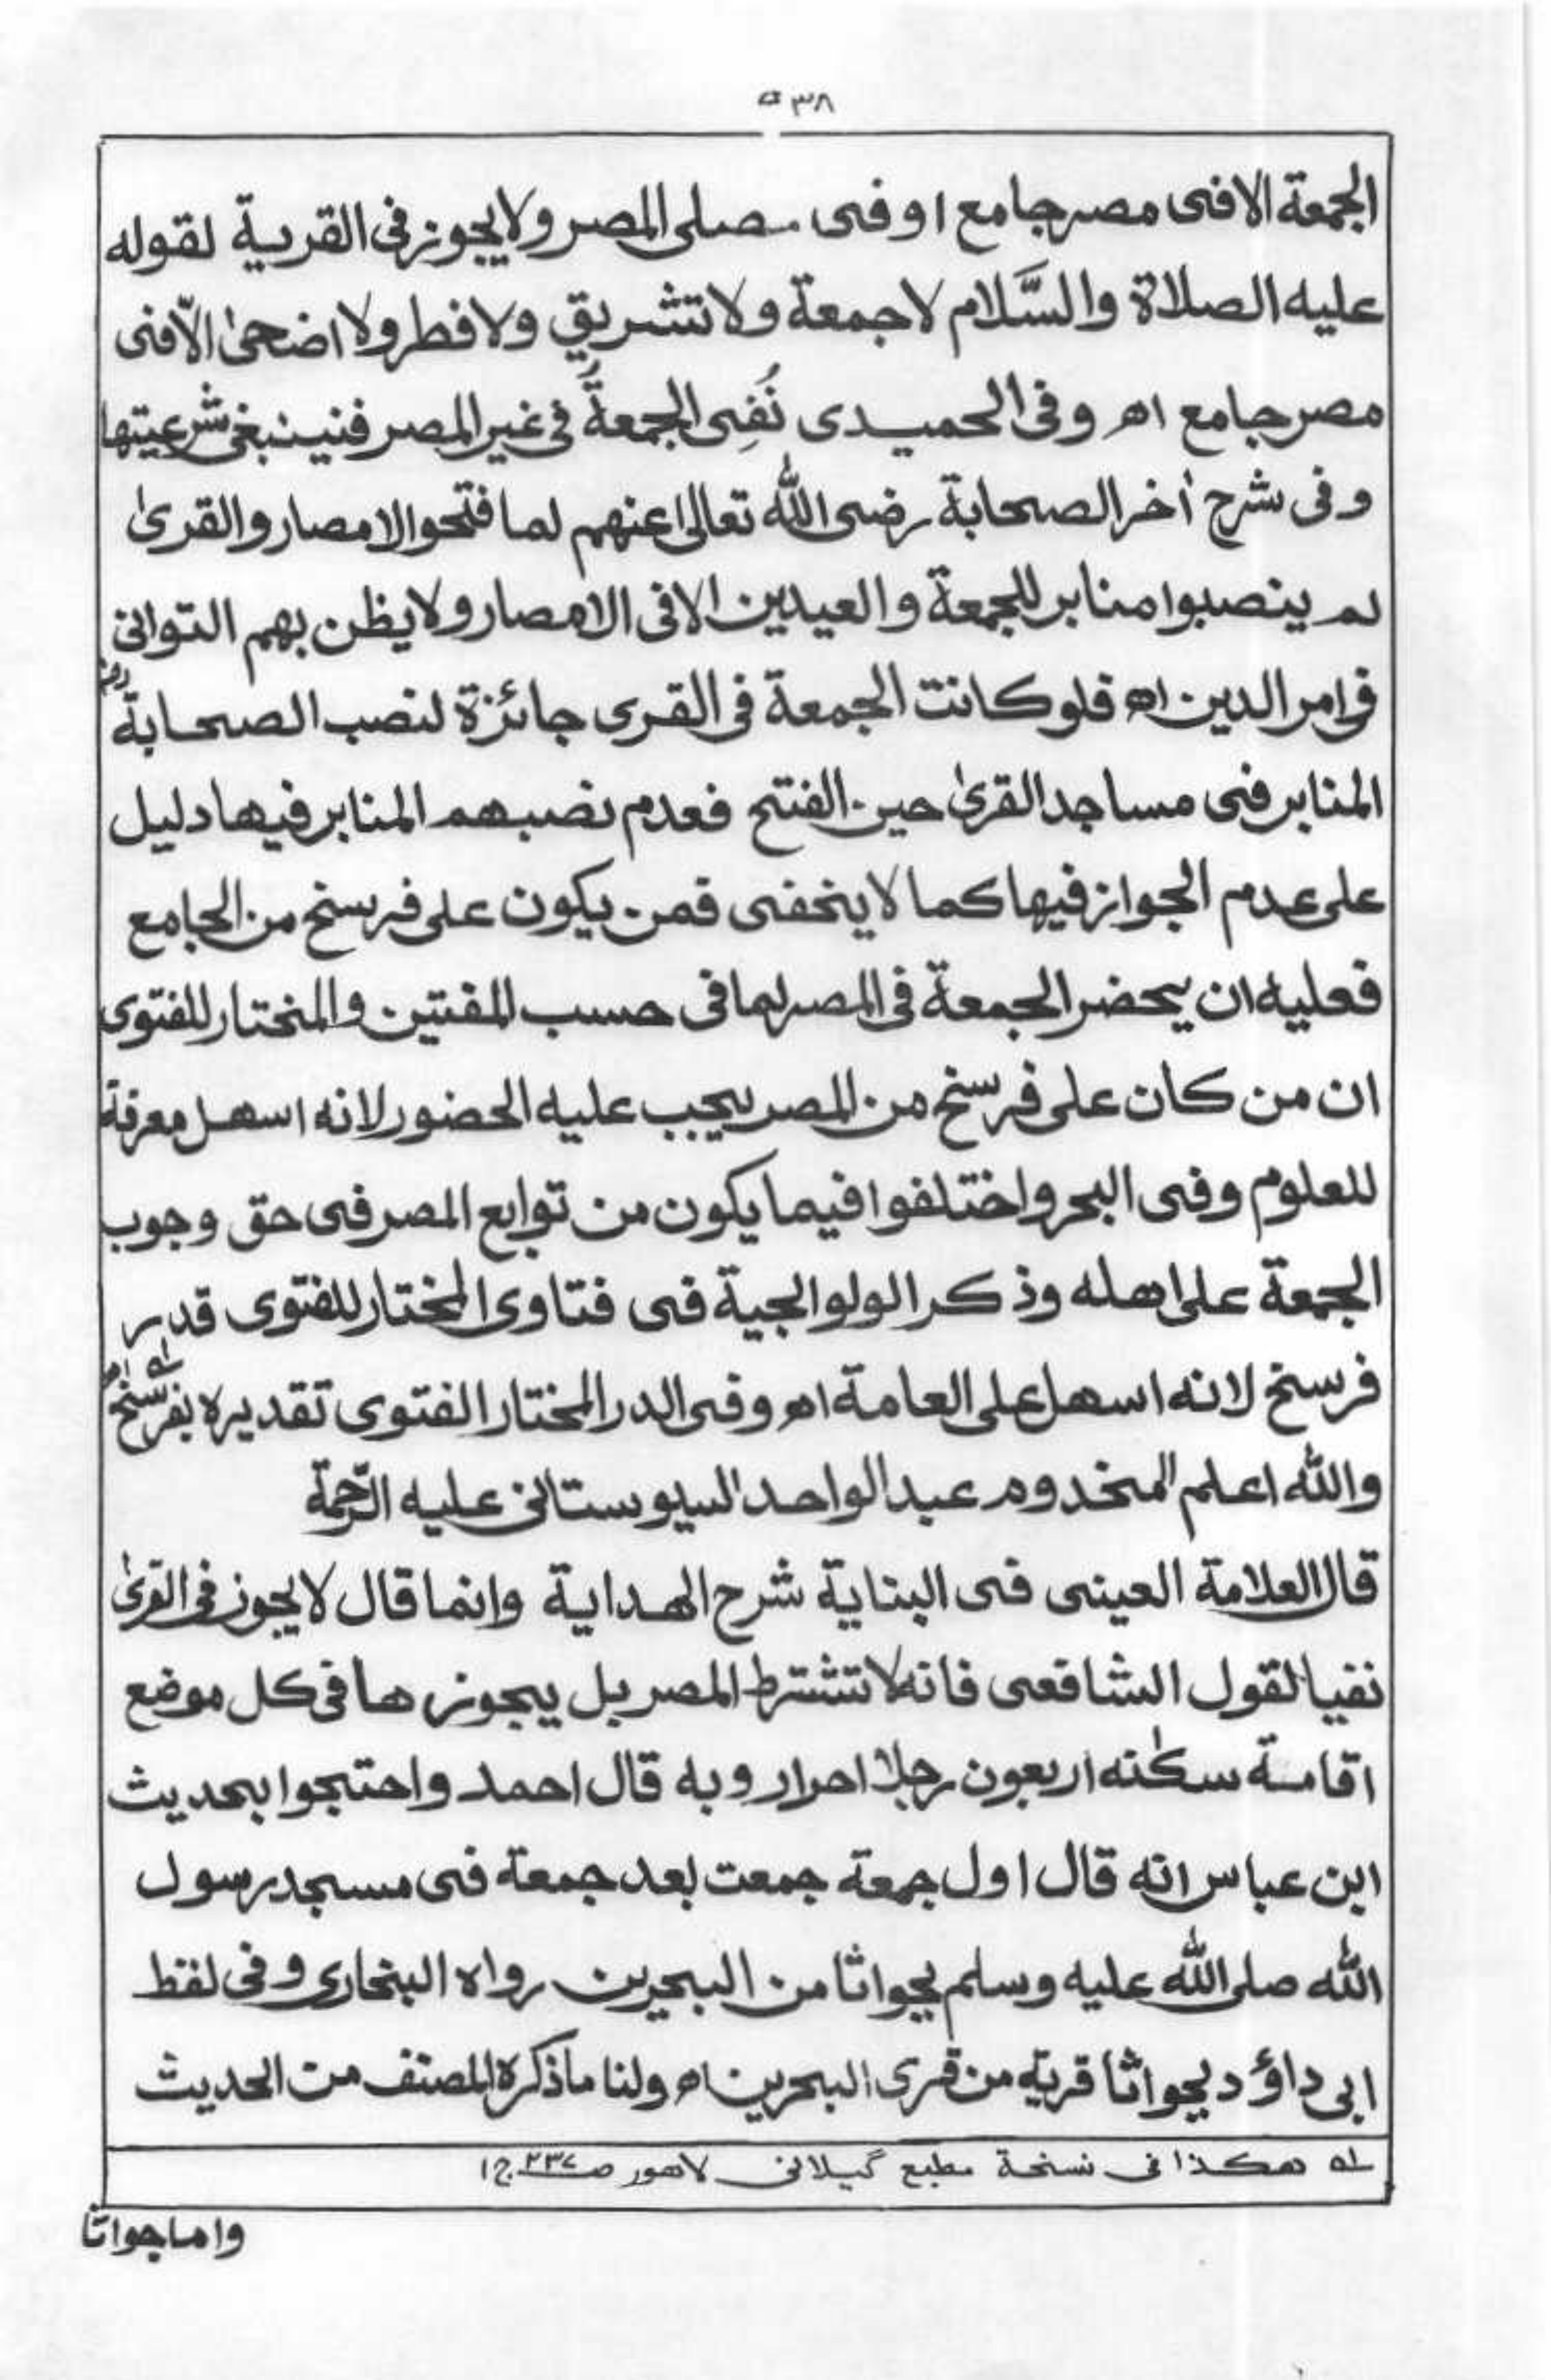 ٥٣٨
الجمعة الا فی مصر جامع او فی مصلی المصر ولا یجوز فی القریة لقوله
علیه الصلاة والسَّلام لا جمعة ولا تشریق ولا فطر ولا اضحیٰ الّا فی
مصر جامع اھ وفی الحمیدی نُفِی الجمعةُ فی غیر المصر فینبغی شرعیتها
وفی شرح أخر الصحابة رضی اللّٰه تعالیٰ عنهم لما فتحوا الامصار والقریٰ
لم ینصبوا منابر للجمعة والعیدین الا فی الامصار ولا یظن بهم التوانی
فی امر الدین اھ فلو کانت الجمعة فی القری جائزة لنصب الصحابة رض
المنابر فی مساجد القریٰ حین الفتح فعدم نصبهم المنابر فیها دلیل
علی عدم الجواز فیها کما لا یخفی فمن یکون علی فرسخ من الجامع
فعلیه ان یحضر الجمعة فی المصر لما فی حسب المفتین والمختار للفتوی
ان من کان علی فرسخ من المصر یجب علیه الحضور لانه اسهل معرفة
للعلوم وفی البحر واختلفوا فیما یکون من توابع المصر فی حق وجوب
الجمعة علی اهله وذکر الولوالجیة فی فتاوی المختار للفتوی قدر
فرسخ لانه اسهل علی العامة اھ وفی الدر المختار الفتوی تقدیره بفرسخ له اھ
واللّٰه اعلم المخدوم عبد الواحد السیوستانی علیه الرّحمة
قال العلامة العینی فی البنایة شرح الهدایة وانما قال لا یجوز فی القریٰ
نفیا لقول الشافعی فانه لا تشترط المصر بل یجوزها فی کل موضع
اقامة سکنه اربعون رجلا احرار وبه قال احمد واحتجوا بحدیث
ابن عباس انه قال اول جمعة جمعت بعد جمعة فی مسجد رسول
اللّٰه صلی اللّٰه علیه وسلم بجواثا من البحرین رواه البخاری وفی لفظ
ابی داؤد بجواثا قریة من قری البحرین اھ ولنا ما ذکره المصنف من الحدیث
له هکذا فی نسخة مطبع گیلانی لاهور ص ٢٣٧ ج ١
واما جواثا